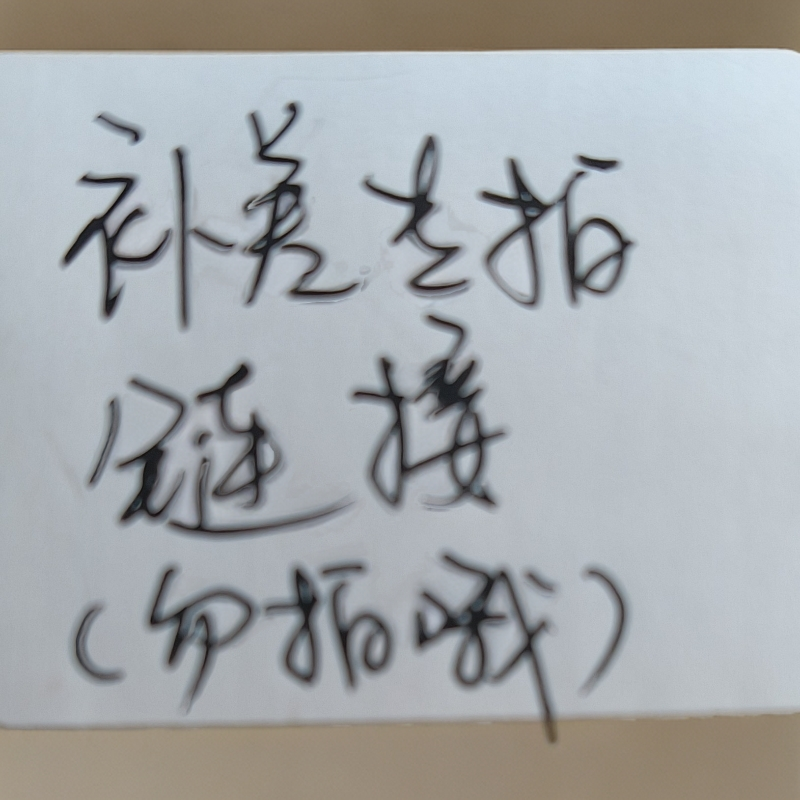 补差专拍
链接
(勿拍哦)